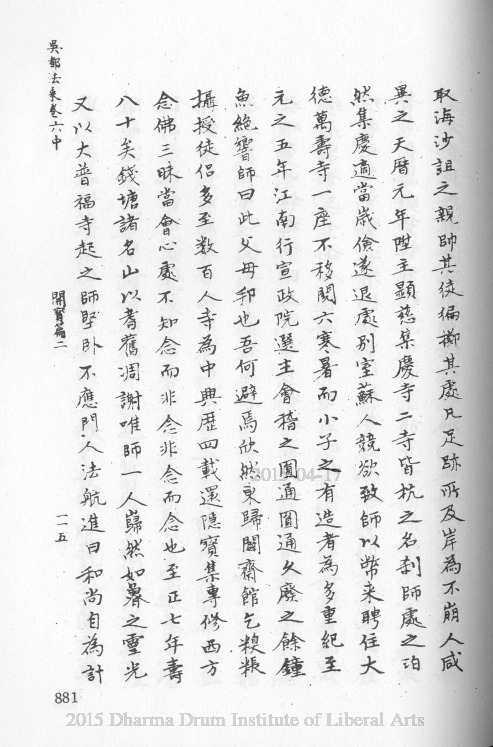 取海沙詛之親帥其徒徧擲其處凡足跡所及岸為不崩人咸
異之天曆元年陞主顯慈集慶寺二寺皆杭之名刹師處之泊
然集慶適當歲儉遂退處別室蘇人競欲致師以幣来聘住大
德萬壽寺一座不移閱六寒暑而小子之有造者為多重紀至
元之五年江南行宣政院選主會稽之圓通圓通久廢之餘鐘
魚絶響師曰此父母邦也吾何避焉欣然東歸闢齋館乞糗粻
攝授徒侶多至数百人寺為中興歷四載還隱寶集專修西方
念佛三昧當會心處不知念而非念非念而念也至正七年壽
八十矣錢塘諸名山以耆舊凋謝唯師一人巋然如魯之靈光
又以大普福寺起之師堅卧不應門人法航進曰和尚自為計
吳都法乘卷六中
開寶篇二
一一五
881
2015-04-17
2015 Dharma Drum Institute of Liberal Arts